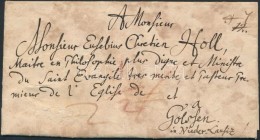 A Monsieur
Monsieur Eusebius Chretien Holl,
Maitre en Philosophie plus Digne et Ministre
du Saint Evangile tres merite et Pasteur Pre
mieur de l'Eglise de et
a
Golssen
in Nieder Lausitz